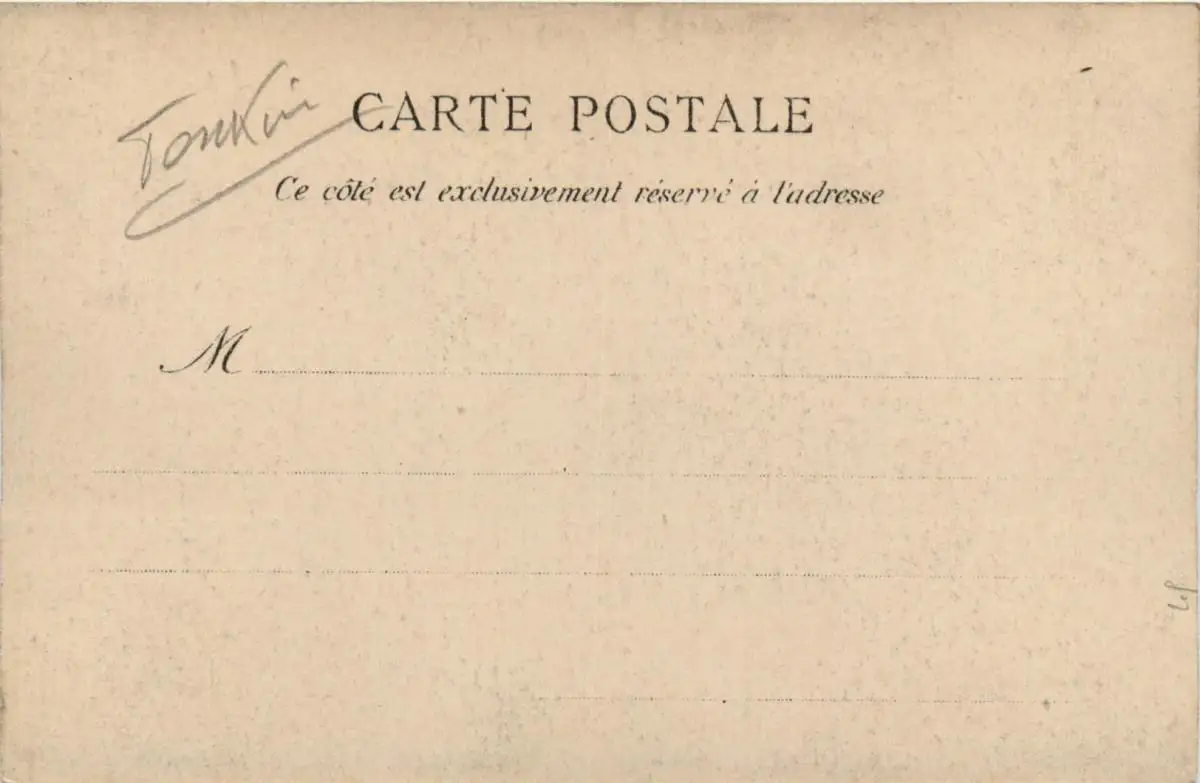 Tonkin
CARTE POSTALE
Ce côté est exclusivement réservé à l'adresse
M